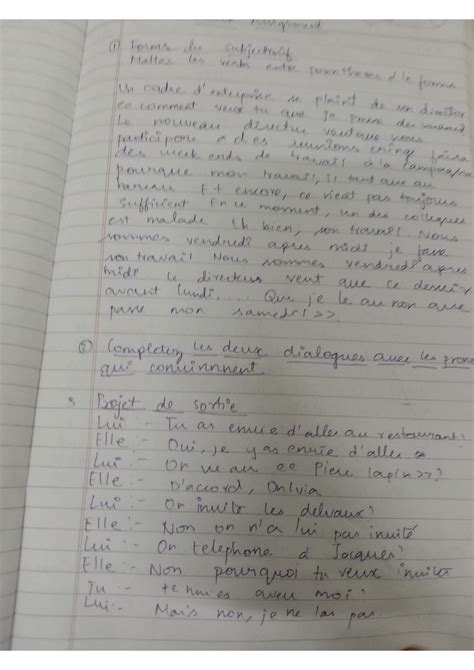 Assignment
① Forms du subjectif
Mettez les verbs entre parentheses à la forme
Un cadre d'entreprise se plaint de son directeur
ce comment veux tu que je
Le nouveau directeur veut que nous
participons a des reunions
des week ends de travail à la campagne
pourque mon travail, il faut que au
bureau Et encore, ce n'est pas toujours
sufficient En ce moment, un des collegues
est malade Eh bien, son travail. Nous
sommes vendredi apres midi je fasse
son travail Nous sommes vendredi apres
midi le directeur veut que ce
avant lundi..... Que je le ou non
passe mon samedi! >>
② Completez les deux dialogues avec les
qui convinnnent
Projet de sortie
Lui :- Tu as envie d'aller au restaurant?
Elle :- Oui, je y as envie d'aller.
Lui :- On va au Piere lapin >>?
Elle :- D'accord, On lvia
Lui :- On invite les delvaux?
Elle :- Non on n'a lui pas invité
Lui :- On telephone à Jacques?
Elle :- Non pourquoi tu veux inviter
Tu :- avec moi?
Lui :- Mais non, je ne las pas.